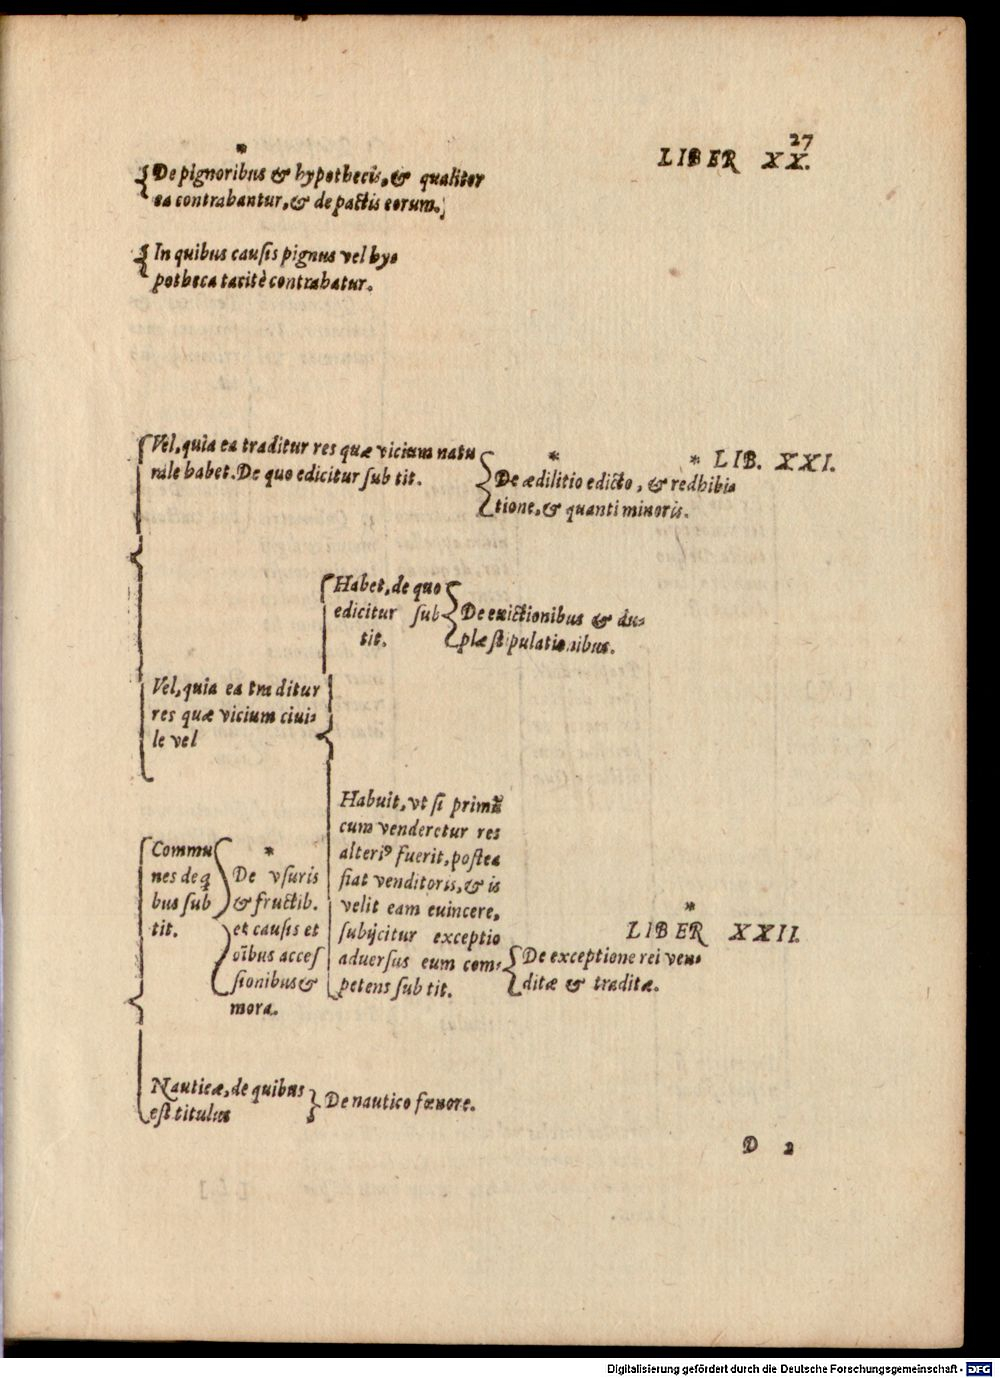 27
LIBER XX.
*
De pignoribus & hypothecis, & qualiter
ea contrahantur, & de pactis eorum.
In quibus causis pignus vel hyo
potheca tacitè contrahatur.
LIB. XXI.
Vel, quia ea traditur res quæ vicium natu
rale habet. De quo edicitur sub tit.
* *
De ædilitio edicto, & redhibia
tione, & quanti minoris.
Habet, de quo
edicitur sub
tit.
De euictionibus & du=
plæ stipulationibus.
Vel, quia ea tra ditur
res quæ vicium ciui=
le vel
Habuit, vt si primũ
cum venderetur res
alteriꝰ fuerit, postea
fiat venditoris, & is
velit eam euincere,
subijcitur exceptio
aduersus eum com=
petens sub tit.
*
LIBER XXII.
De exceptione rei ven=
ditæ & traditæ.
Commu
nes de ꝗ
bus sub
tit.
*
De vsuris
& fructib.
et causis et
oĩbus acces
sionibus &
mora.
Nauticæ, de quibus
est titulus
De nautico fœnore.
D 2
Digitalisierung gefördert durch die Deutsche Forschungsgemeinschaft - DFG